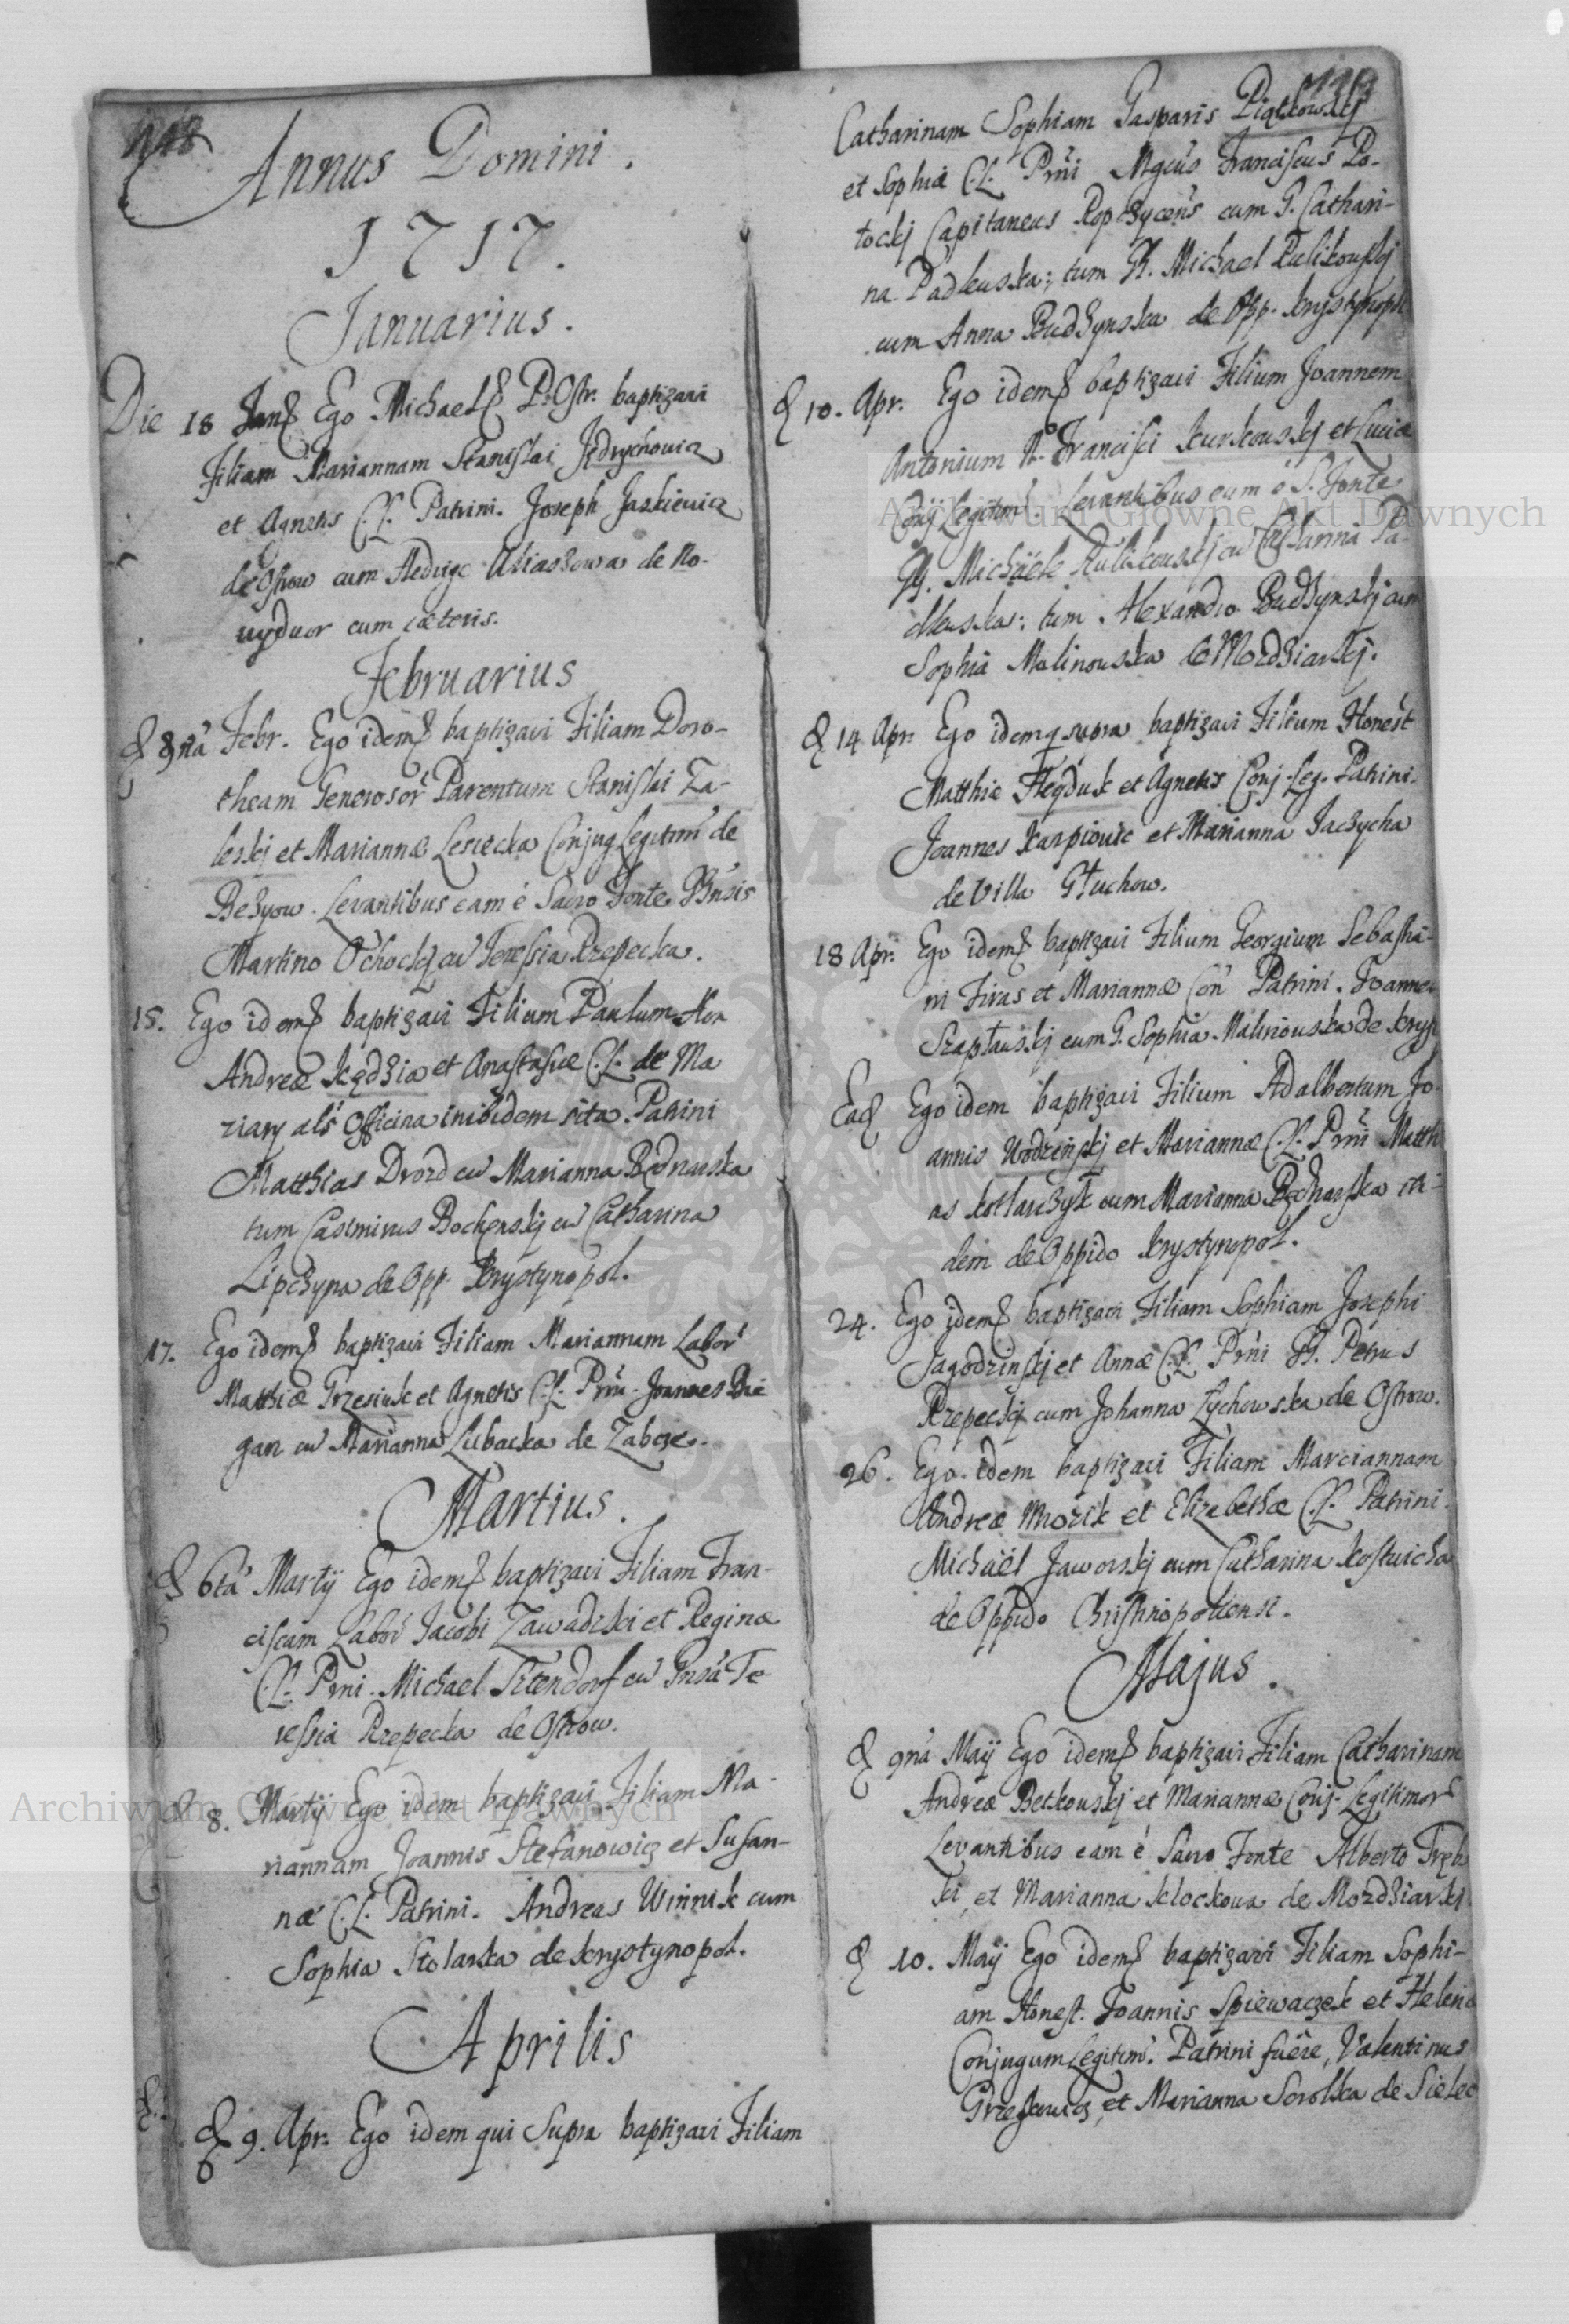 118
Annus Domini.
1717.
Januarius.
Die 18 Ego Michael baptizavi
Filiam Mariannam Stanislai Jędrychowicz
et Agnetis C.L. Patrini. Joseph Jaskiewicz
de Ostrow cum Hedvige de No-
uydwor cum cæteris.
Februarius
Febr. Ego idem baptizavi Filiam Doro-
theam Generosor Parentum Stanislai Za-
leskj et Mariannæ Conjug Legitim de
Levantibus eam è Sacro Fonte
Martino Ochockj cu Teressia Rzepecka.
15. Ego idem baptizavi Filium Paulum Hon
Andreæ Kędzia et Anastasiæ C.L. de Ma
ziary als Officina inibidem sita. Patrini
Matthias Drozd cu Marianna Bednarska
tum Casimirus Bochenskj cu Catharina
Lipczyna de Opp Krystynopol.
17. Ego idem baptizavi Filiam Mariannam Labor
Matthiæ Grzesiuk et Agnetis C.L. Prni. Joannes Bie
gan cu Marianna Lubacka de Zabcze.
Martius.
6ta Martij Ego idem baptizavi Filiam Fran-
ciscam Labor Jacobi Zawadzki et Reginæ
C.L. Prni. Michael cu Te-
ressia Rzepecka de Ostrow.
8. Martij Ego idem baptizavi Filiam Ma-
riannam Joannis Stefanowicz et Susan-
næ C.L. Patrini. Andreas Winnik cum
Sophia Stolarka de Krystynopol.
Aprilis
9. Apr. Ego idem qui Supra baptizavi Filiam
Catharinam Sophiam Gasparis Piątkowskj
et Sophiæ C.L. Prni Mgcus Franciscus Po-
tockj Capitaneus cum G. Cathari-
na Padleuska; tum G. Michael Rulikouskj
cum Anna Budzynska de Opp. Krystynopol
10. Apr. Ego idem baptizavi Filium Joannem
Antonium Francisci Kurkouskj et Luciæ
Conj Legitim. Levantibus eum è S. Fonte
G. Michäele Rulikouskj cu Catharina Pa-
dleuska: tum Alexandro Budzynskj cum
Sophia Malinouska de Mozdziarkj.
14 Apr. Ego idem q supra baptizavi Filium Honest
Matthiæ Hayduk et Agnetis Conj. Leg. Patrini.
Joannes Karpiouic et Marianna Jaczycha
de Villa Głuchow.
18 Apr. Ego idem baptizavi Filium Georgium Sebastia-
ni Firas et Mariannæ Con Patrini. Joannes
Szaptauskj cum G. Sophia Malinouska de Kryst
Ead Ego idem baptizavi Filium Adalbertum Jo-
annis Wodzinskj et Mariannæ C.L. Prni Matthi
as Kotlarczyk cum Marianna Bednarska iti-
dem de Oppido Krystynopol.
24. Ego idem baptizavi Filiam Sophiam Josephi
Jagodzinskj et Annæ C.L. Prni G. Petrus
Rzepeckj cum Johanna Łychowska de Ostrow.
26. Ego idem baptizavi Filiam Marciannam
Andreæ Mrozik et Elizabethæ C.L. Patrini.
Michäel Jaworskj cum Catharina Kostwicha
de Oppido Christinopoliensi.
Majus.
9na Maij Ego idem baptizavi Filiam Catharinam
Andreæ Betkouskj et Mariannæ Conj. Legitimor
Levantibus eam è Sacro Fonte Alberto Trębs
ki, et Marianna Klockowa de Mozdziarkj
10. Maij Ego idem baptizavi Filiam Sophi-
am Honest. Joannis Spiewaczek et Helenæ
Conjugum Legitim. Patrini fuêre, Valentinus
et Marianna Scrolska de Sielec
Archiwum Główne Akt Dawnych
Archiwum Główne Akt Dawnych